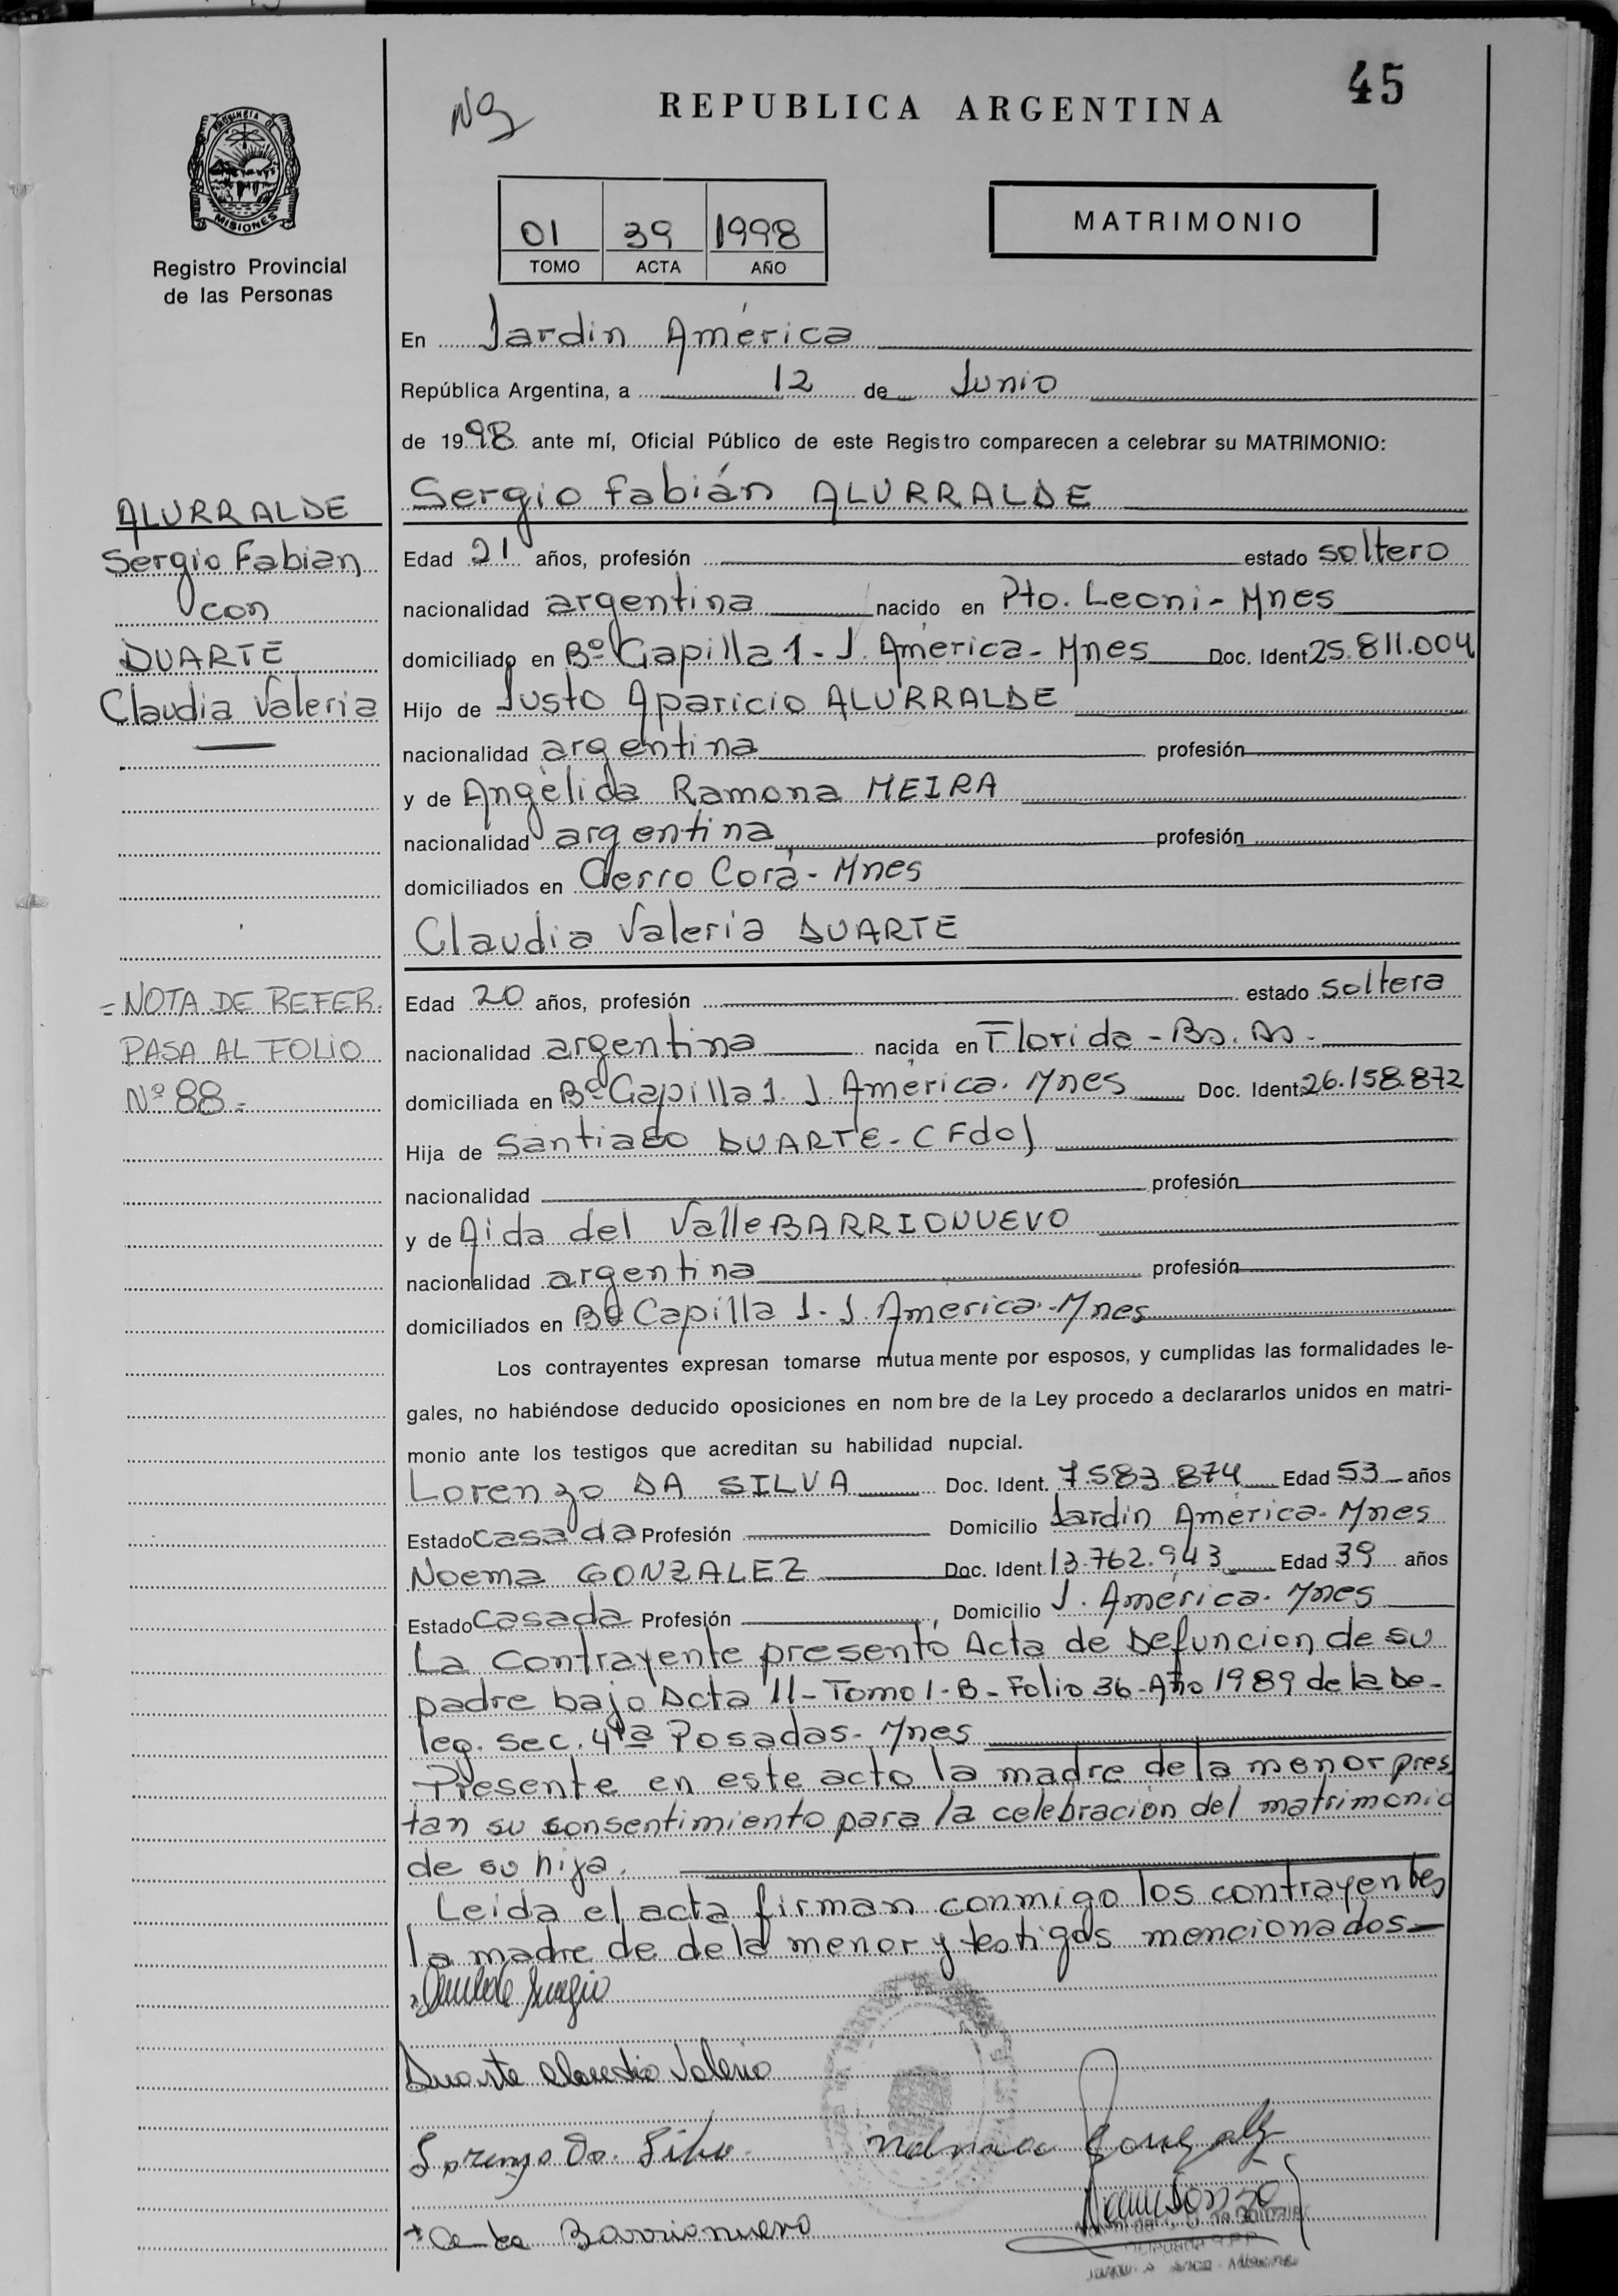 45
Ng
REPUBLICA ARGENTINA
PROVINCIA DE
MISIONES
Registro Provincial
de las Personas
01 39 1998
TOMO ACTA AÑO
MATRIMONIO
En Jardin América
República Argentina, a 12 de Junio
de 1998 ante mí, Oficial Público de este Registro comparecen a celebrar su MATRIMONIO:
ALURRALDE
Sergio Fabian
con
DUARTE
Claudia Valeria
Sergio Fabián ALURRALDE
Edad 21 años, profesión estado soltero
nacionalidad argentina nacido en Pto. Leoni - Mnes
domiciliado en Bº Capilla 1 - J. América - Mnes Doc. Ident 25.811.004
Hijo de Justo Aparicio ALURRALDE
nacionalidad argentina profesión
y de Angélida Ramona MEIRA
nacionalidad argentina profesión
domiciliados en Cerro Corá - Mnes
Claudia Valeria DUARTE
= NOTA DE REFER.
PASA AL FOLIO
Nº 88 -
Edad 20 años, profesión estado soltera
nacionalidad argentina nacida en Florida - Bs. As.
domiciliada en Bº Capilla 1. J. América. Mnes Doc. Ident. 26.158.872
Hija de Santiago DUARTE - (Fdo)
nacionalidad profesión
y de Aida del Valle BARRIONUEVO
nacionalidad argentina profesión
domiciliados en Bº Capilla 1 - J. América - Mnes
Los contrayentes expresan tomarse mutuamente por esposos, y cumplidas las formalidades le-
gales, no habiéndose deducido oposiciones en nombre de la Ley procedo a declararlos unidos en matri-
monio ante los testigos que acreditan su habilidad nupcial.
Lorenzo DA SILVA Doc. Ident. 7.583.874 Edad 53 años
Estado casado Profesión Domicilio Jardin América - Mnes
Noema GONZALEZ Doc. Ident 13.762.943 Edad 39 años
Estado casada Profesión Domicilio J. América. Mnes
La contrayente presentó Acta de Defuncion de su
padre bajo Acta 11 - Tomo 1 - B - Folio 36 - Año 1989 de la De-
leg. Sec. 4ta Posadas - Mnes
Presente en este acto la madre de la menor pres
tan su consentimiento para la celebración del matrimonio
de su hija.
Leida el acta firman conmigo los contrayentes
la madre de de la menor y testigos mencionados -
Sergio
Duarte Claudia Valeria
Lorenzo Da Silva
Gonzalez
Barrionuevo